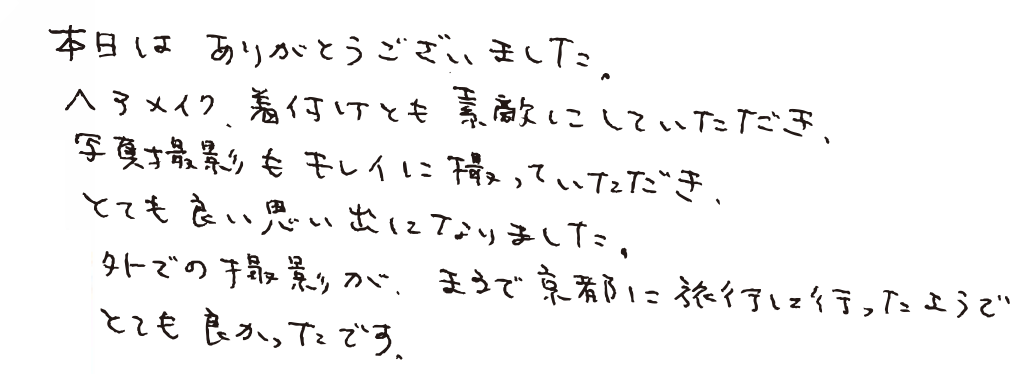 本日は ありがとうございました。
ヘアメイク、着付けとも 素敵にしていただき、
写真撮影も キレイに撮っていただき、
とても良い思い出になりました。
外での撮影が、まるで京都に旅行に行ったようで
とても良かったです。